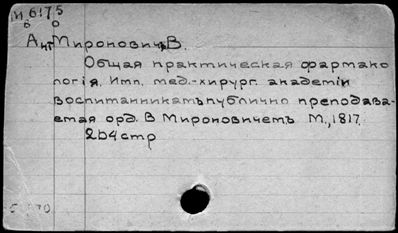 И 6175
Миронович, В.
Общая практическая фармако
логія. Имп. мед.-хирург. академіи
воспитанникамъ публично преподава-
емая орд. В Мироновичемъ М., 1817.
264 стр